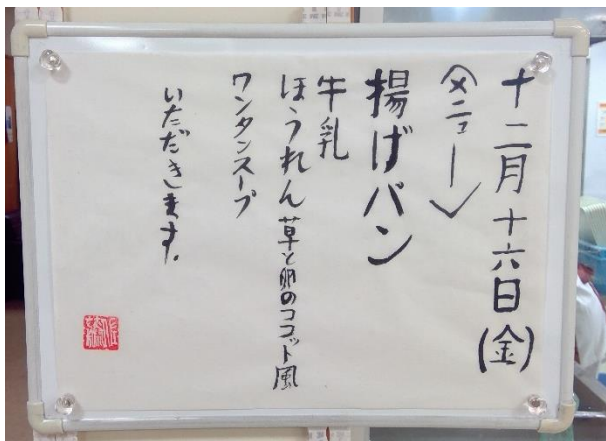 十二月十六日(金)
〈メニュー〉
揚げパン
牛乳
ほうれん草と卵のココット風
ワンタンスープ
いただきます。